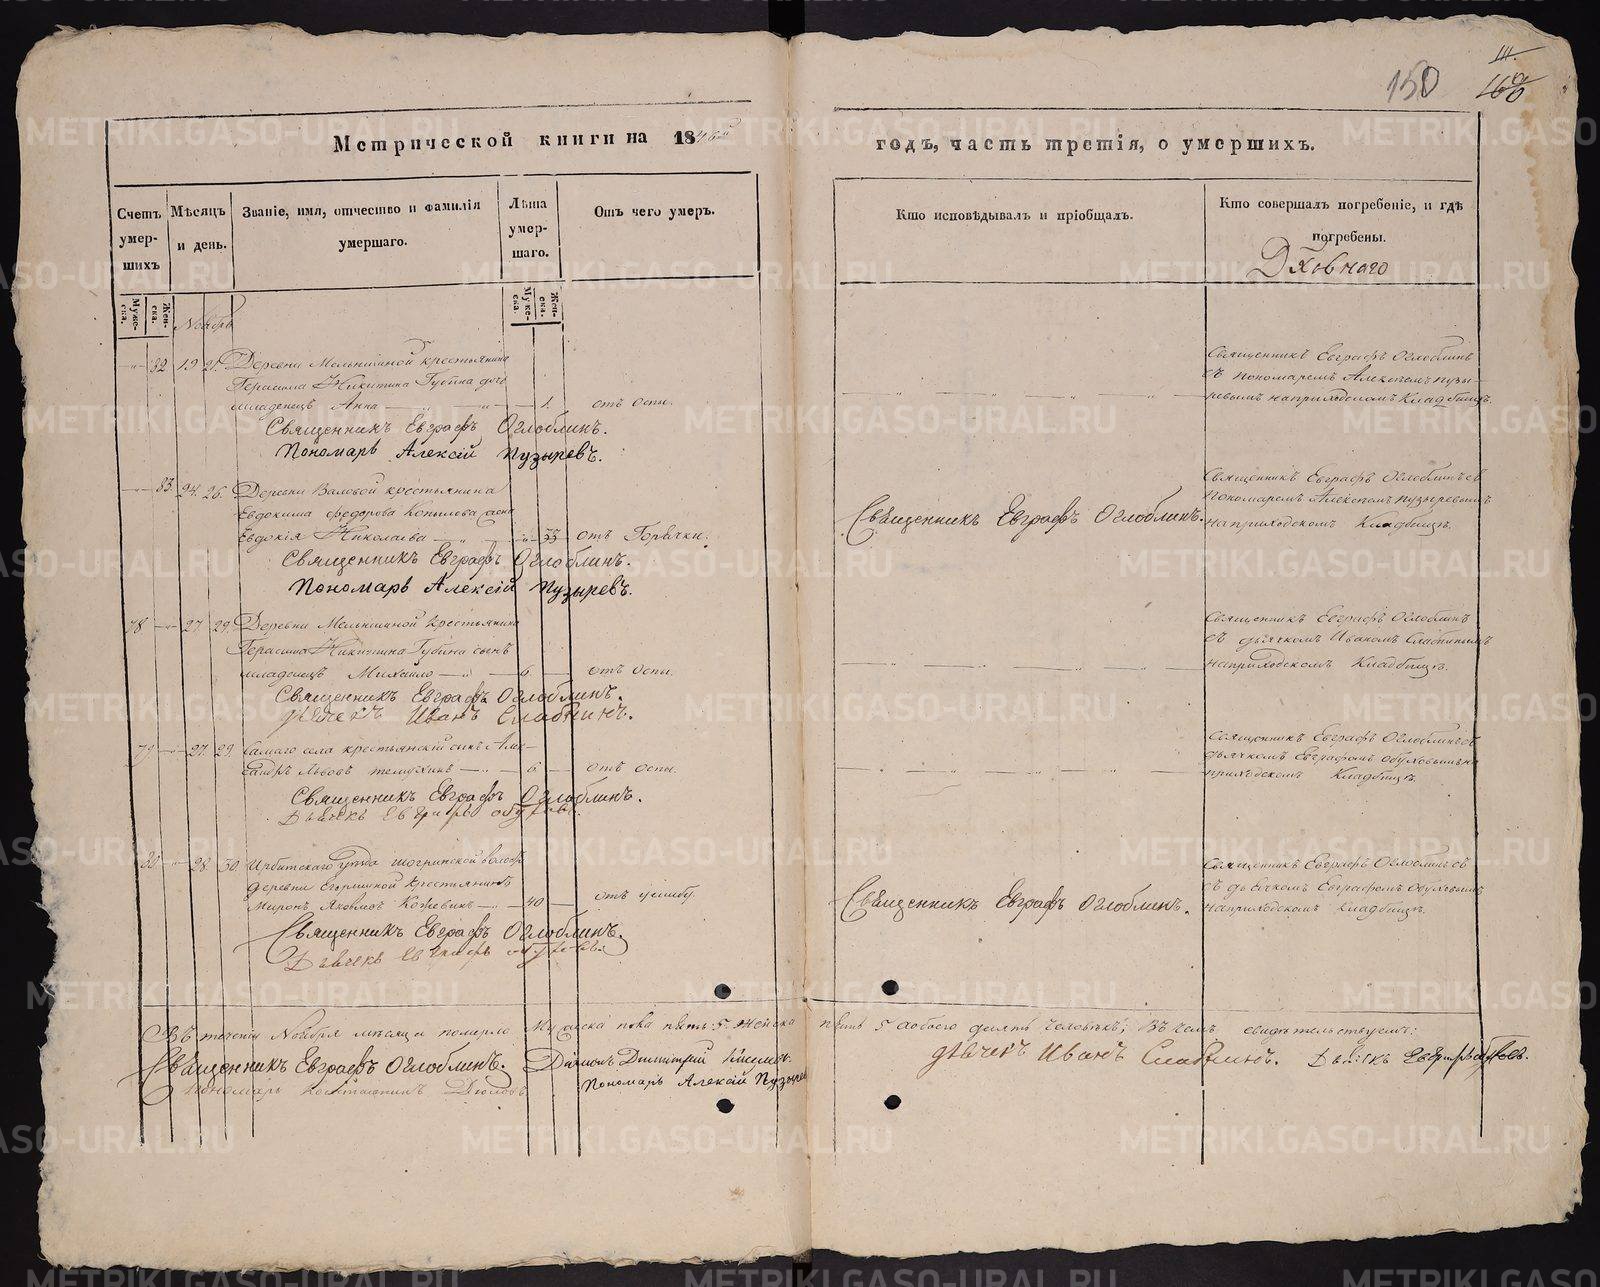 150
Метрической книги на 1846
годъ, часть третія, о умершихъ.
Счетъ умер-шихъ
Мѣсяцъ и день.
Званіе, имя, отчество и фамилія умершаго.
Лѣта умер-шаго.
Отъ чего умеръ.
Кто исповѣдывалъ и пріобщалъ.
Кто совершалъ погребеніе, и гдѣ погребены.
Муже-ска.
Жен-ска.
Ноябрь
Муже-ска.
Жен-ска.
82 19 21 Деревни Мельничной крестьянина
Герасима Никитина Губина дочь
младенецъ Анна 1. отъ оспы.
Священникъ Евграфъ Оглоблинъ
съ пономаремъ Алексѣемъ Пузы-
ревымъ на приходскомъ кладбищѣ.
Священникъ Евграфъ Оглоблинъ.
Пономарь Алексій Пузыревъ.
83 24. 26. Деревни Валовой крестьянина
Евдокима Федорова Копылова жена
Евдокія Николаева 55 отъ Горячки.
Священникъ Евграфъ Оглоблинъ.
Священникъ Евграфъ Оглоблинъ съ
пономаремъ Алексѣемъ Пузыревымъ
на приходскомъ кладбищѣ.
Священникъ Евграфъ Оглоблинъ.
Пономарь Алексій Пузыревъ.
78 27 29. Деревни Мельничной крестьянина
Герасима Никитина Губина сынъ
младенецъ Михаило 6. отъ оспы.
Священникъ Евграфъ Оглоблинъ
съ дьячкомъ Иваномъ Слабнинымъ
на приходскомъ кладбищѣ.
Священникъ Евграфъ Оглоблинъ.
Дьячекъ Иванъ Слабнинъ.
79 27. 29. самаго села крестьянскій сынъ Алек-
сандръ Львовъ 6. отъ оспы.
Священникъ Евграфъ Оглоблинъ съ
дьячкомъ Евграфомъ Обуховымъ на
приходскомъ кладбищѣ.
Священникъ Евграфъ Оглоблинъ.
Дьячекъ Евграфъ Обуховъ.
80 28. 30. Ирбитскаго уѣзда Шогринской волости
деревни Егоршиной крестьянинъ
Миронъ Якимовъ Кожевинъ 40 отъ ушибу.
Священникъ Евграфъ Оглоблинъ.
Священникъ Евграфъ Оглоблинъ
съ дьячкомъ Евграфомъ Обуховымъ
на приходскомъ кладбищѣ.
Священникъ Евграфъ Оглоблинъ.
Дьячекъ Евграфъ Обуховъ.
Въ теченіи Ноября мѣсяца померло Мужеска пола пять 5. женска пять 5 а обоего десять человѣкъ; въ чемъ свидѣтельствуемъ:
Священникъ Евграфъ Оглоблинъ. Діаконъ Димитрій
Дьячекъ Иванъ Слабнинъ. Дьячекъ Евграфъ Обуховъ.
пономарь Константинъ
Пономарь Алексій Пузыревъ
METRIKI.GASO-URAL.RU